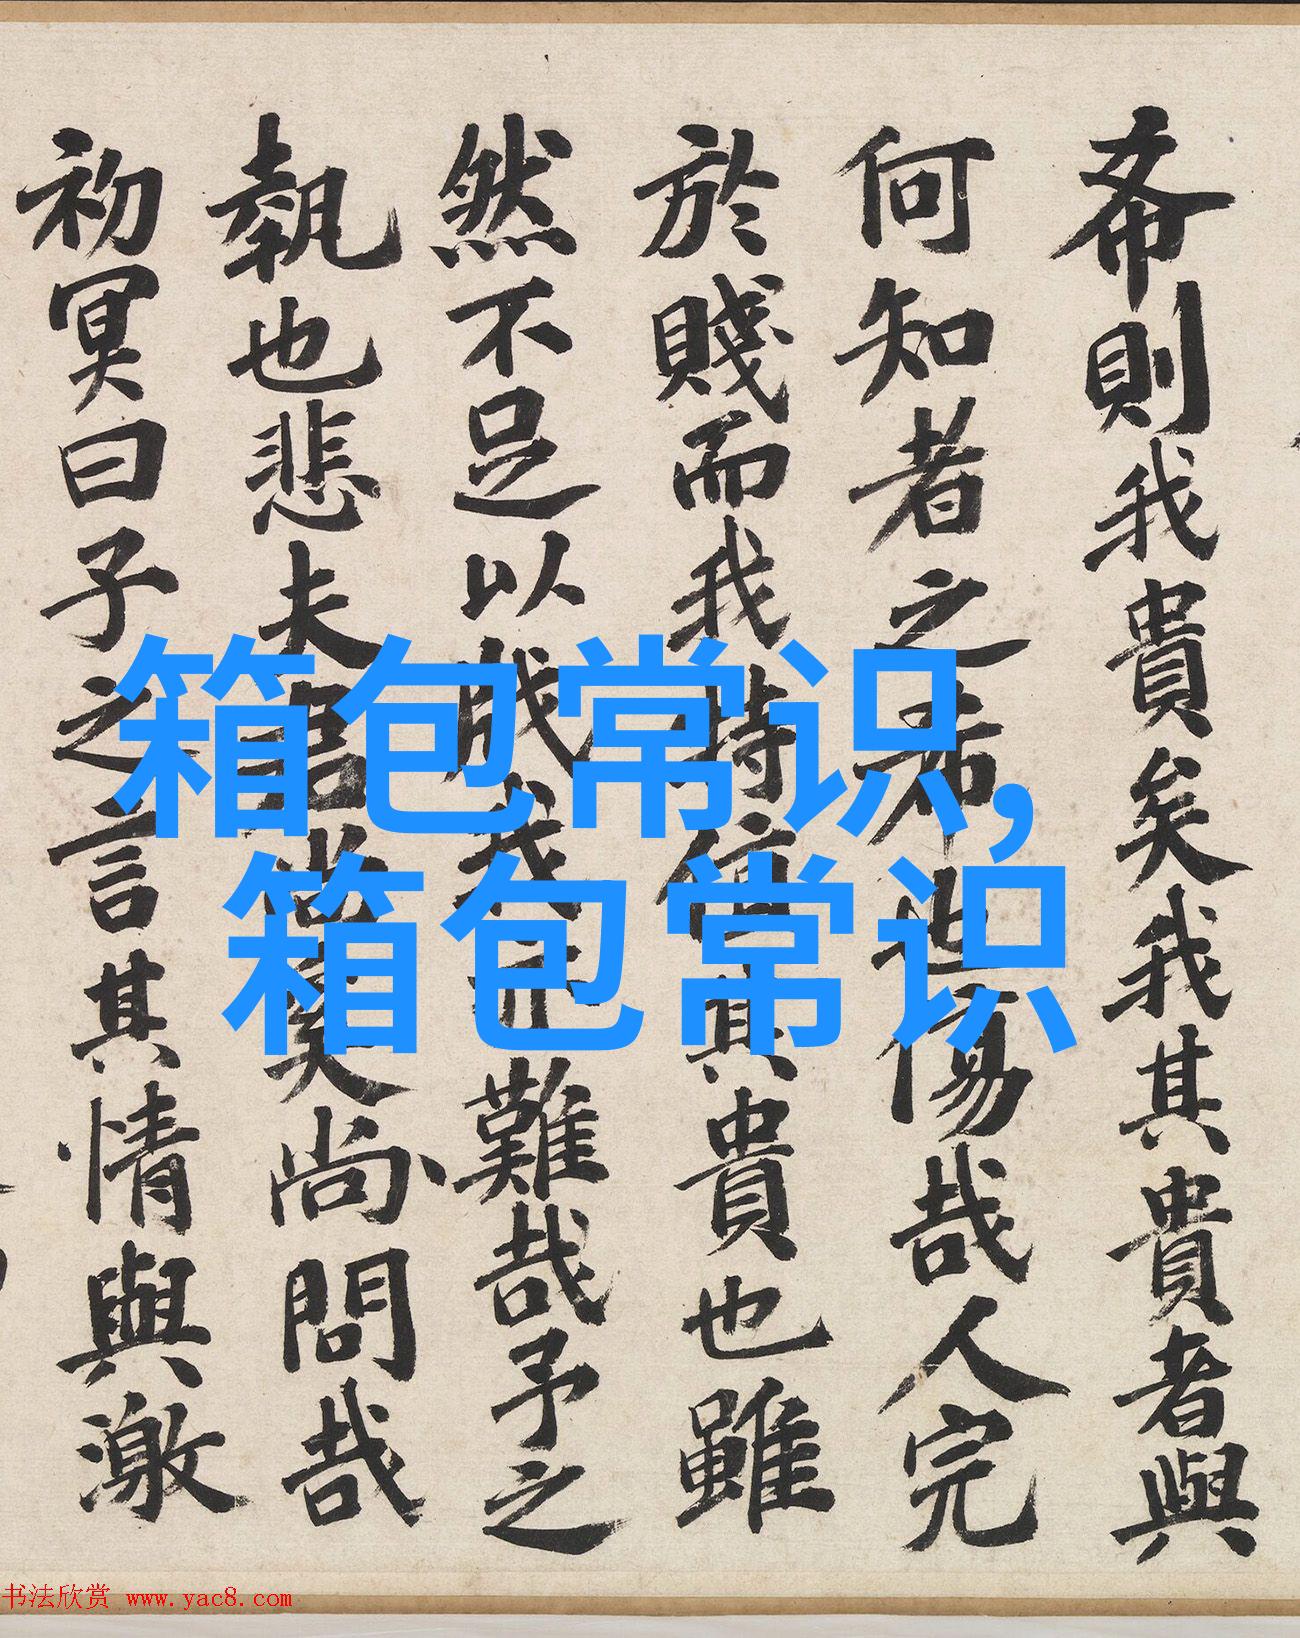 希則我貴矣我其貴者與
何知者之希也傷哉人完
於賤而我持信其貴也雖
然不足以成我亦難哉予之
執也悲夫君尚矣尚問哉
初冥曰子之言其情與激
箱包常识,
箱包常识
书法欣赏 www.yac8.com